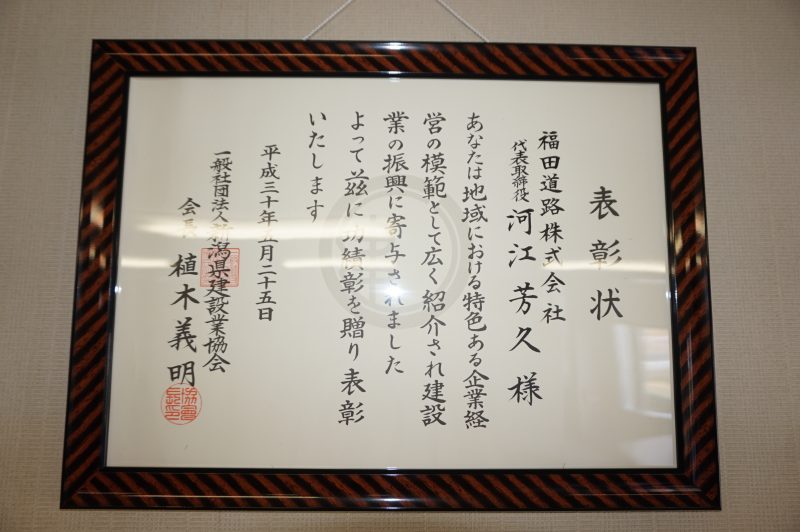 表彰状
福田道路株式会社
代表取締役 河江芳久様
あなたは地域における特色ある企業経
営の模範として広く紹介され建設
業の振興に寄与されました
よって茲に功績彰を贈り表彰
いたします
平成三十年五月二十五日
一般社団法人新潟県建設業協会
会長 植木義明